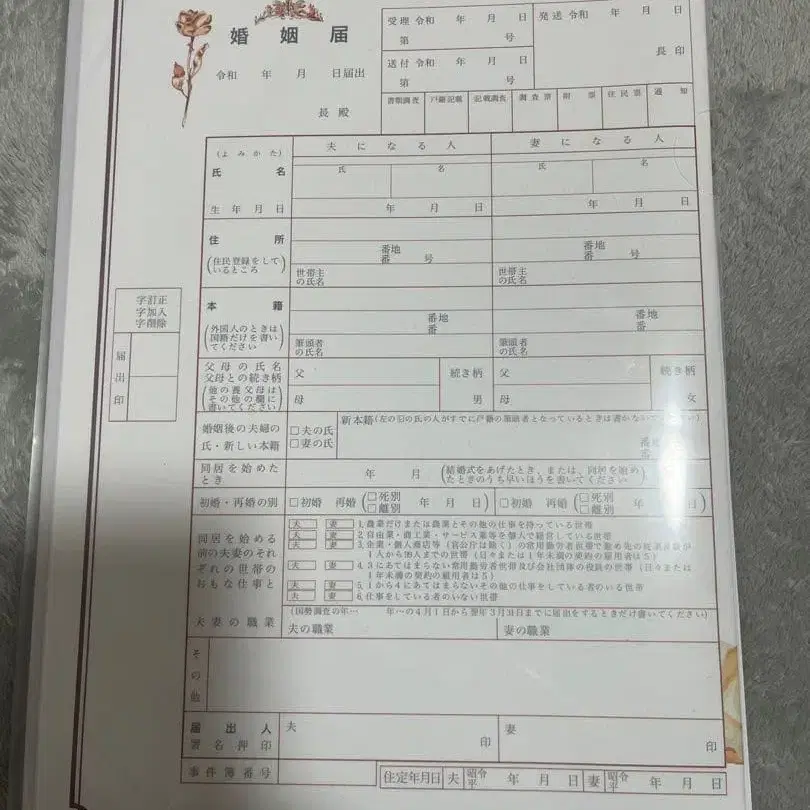 婚姻届
令和　年　月　日届出
長　殿
受理 令和　年　月　日
第　　　　　号
送付 令和　年　月　日
第　　　　　号
発送 令和　年　月　日
長　印
書類調査　戸籍記載　記載調査　調査票　附票　住民票　通知
夫になる人　妻になる人
（よみかた）
氏名　氏　名　氏　名
生年月日　年　月　日　年　月　日
住所
（住民登録をして
いるところ）
番地
番　号
番地
番　号
世帯主
の氏名
世帯主
の氏名
本籍
（外国人のときは
国籍だけを書い
てください）
番地
番
番地
番
筆頭者
の氏名
筆頭者
の氏名
字訂正
字加入
字削除
届出印
父母の氏名
父母との続き柄
（他の養父母は
その他の欄に
書いてください）
父　続き柄　父　続き柄
母　男　母　女
婚姻後の夫婦の
氏・新しい本籍
□夫の氏
□妻の氏
新本籍（左の☑の氏の人がすでに戸籍の筆頭者となっているときは書かないで
番
同居を始めた
とき
年　月
（結婚式をあげたとき、または、同居を始め
たときのうち早いほうを書いてください）
初婚・再婚の別　□初婚　再婚（□死別　□離別　年　月　日）　□初婚　再婚（□死別　□離別　年　月　日）
同居を始める
前の夫妻のそれ
ぞれの世帯の
おもな仕事と
夫　妻　1.農業だけまたは農業とその他の仕事を持っている世帯
夫　妻　2.自由業・商工業・サービス業等を個人で経営している世帯
夫　妻　3.企業・個人商店等（官公庁は除く）の常用勤労者世帯で勤め先の従業者数が
1人から99人までの世帯（日々または1年未満の契約の雇用者は5）
夫　妻　4.3にあてはまらない常用勤労者世帯及び会社団体の役員の世帯（日々または
1年未満の契約の雇用者は5）
夫　妻　5.1から4にあてはまらないその他の仕事をしている者のいる世帯
夫　妻　6.仕事をしている者のいない世帯
夫妻の職業
（国勢調査の年…　年…の4月1日から翌年3月31日までに届出をするときだけ書いてください）
夫の職業　妻の職業
その他
届出人
署名押印
夫　印　妻　印
事件簿番号
住定年月日　夫　昭令平　年　月　日　妻　昭令平　年　月　日